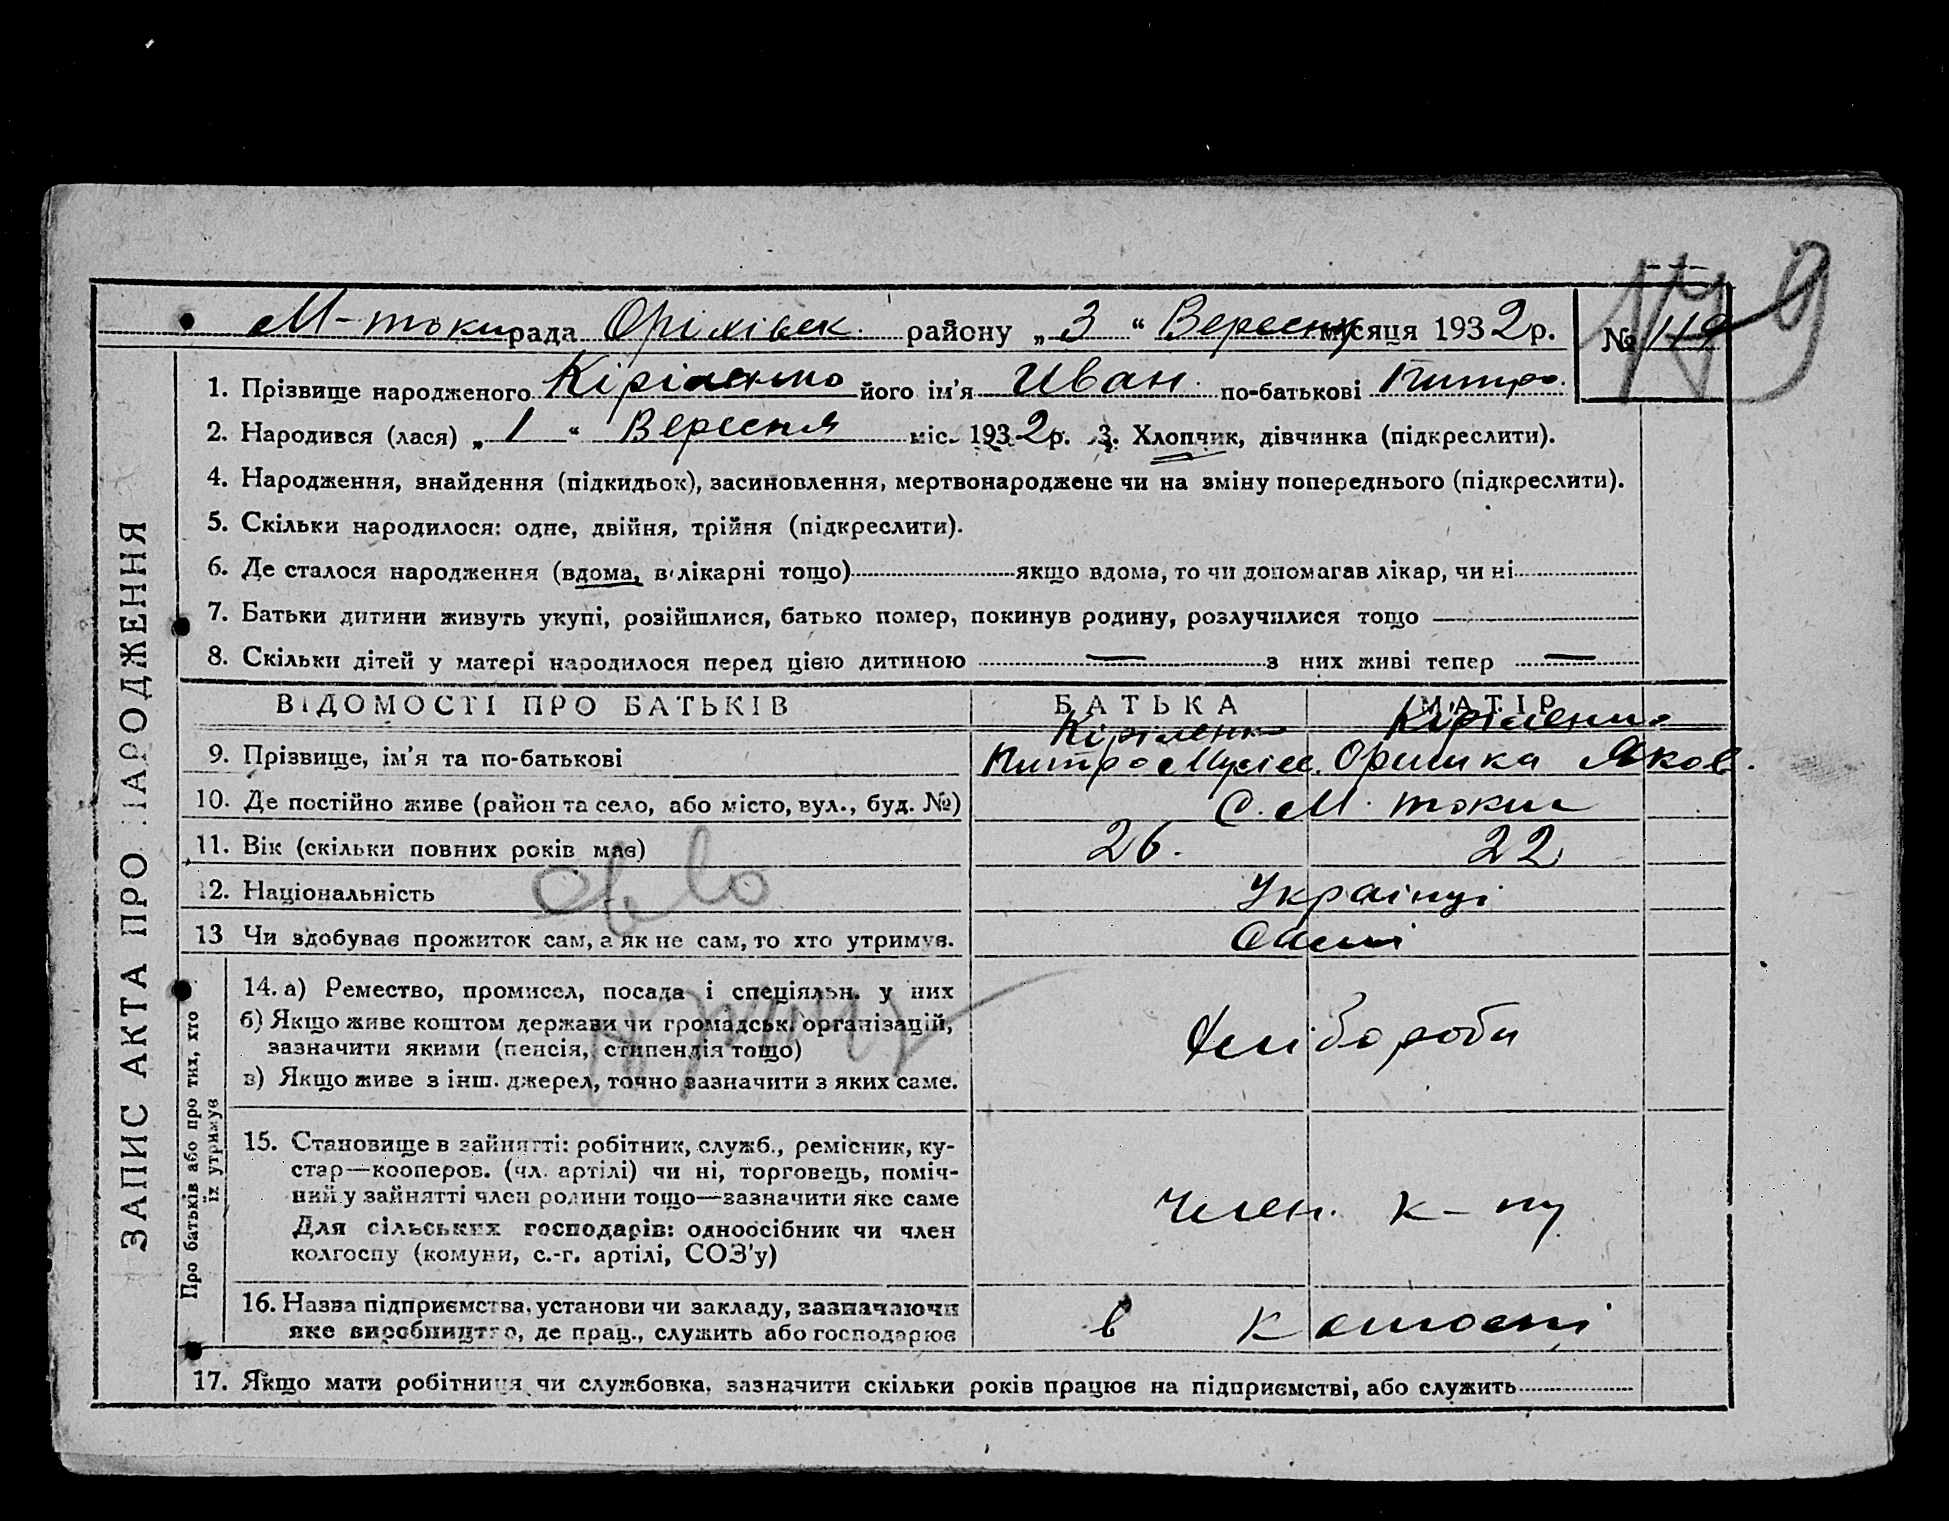 М-токи рада Оріхівськ. району „ 3 “ Вересня місяця 1932 р.
№ 119
179
1. Прізвище народженого Кіріленко його ім’я Иван. по-батькові Питро.
2. Народився (лася) „ 1 “ Вересня міс. 1932 р. 3. Хлопчик, дівчинка (підкреслити).
4. Народження, знайдення (підкидьок), засиновлення, мертвонароджене чи на зміну попереднього (підкреслити).
5. Скільки народилося: одне, двійня, трійня (підкреслити).
6. Де сталося народження (вдома, в лікарні тощо) якщо вдома, то чи допомагав лікар, чи ні
7. Батьки дитини живуть укупі, розійшлися, батько помер, покинув родину, розлучилися тощо —
8. Скільки дітей у матері народилося перед цією дитиною — з них живі тепер —
ВІДОМОСТІ ПРО БАТЬКІВ БАТЬКА МАТІР
Кіріленко Кіріленко
9. Прізвище, ім’я та по-батькові Питро Мусієв. Оришка Яков.
10. Де постійно живе (район та село, або місто, вул., буд. №) С. М. токи
11. Вік (скільки повних років має) 26. 22
12. Національність Українці
13 Чи здобуває прожиток сам, а як не сам, то хто утримув. Самі
14. а) Ремество, промисел, посада і спеціяльн. у них
б) Якщо живе коштом держави чи громадськ. організацій,
зазначити якими (пенсія, стипендія тощо)
хлібороби
в) Якщо живе з інш. джерел, точно зазначити з яких саме.
15. Становище в зайнятті: робітник, служб., ремісник, ку-
стар—кооперов. (чл. артілі) чи ні, торговець, поміч-
ний у зайнятті член родини тощо—зазначити яке саме
Для сільських господарів: одноосібник чи член
колгоспу (комуни, с.-г. артілі, СОЗ’у)
Член. к-пу
16. Назва підприємства, установи чи закладу, зазначаючи
яке виробництво, де прац., служить або господарює
в колгоспі
17. Якщо мати робітниця чи службовка, зазначити скільки років працює на підприємстві, або служить
ЗАПИС АКТА ПРО НАРОДЖЕННЯ
Про батьків або про тих, хто
їх утримує